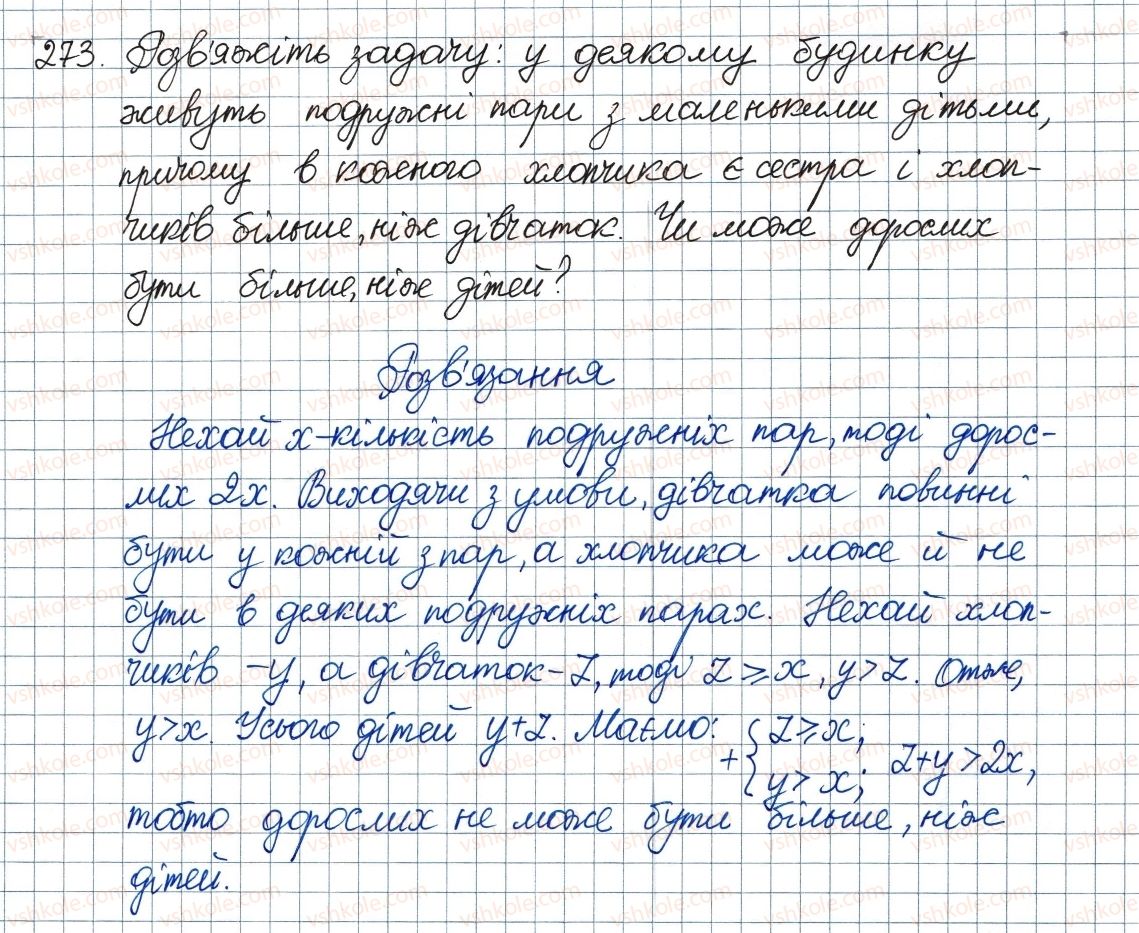 273. Розв'яжіть задачу: у деякому будинку
живуть подружні пари з маленькими дітьми,
причому в кожного хлопчика є сестра і хлоп-
чиків більше, ніж дівчаток. Чи може дорослих
бути більше, ніж дітей?
Розв'язання
Нехай x-кількість подружніх пар, тоді дорос-
лих 2x. Виходячи з умови, дівчатка повинні
бути у кожній з пар, а хлопчика може й не
бути в деяких подружніх парах. Нехай хлоп-
чиків - y, а дівчаток - z, тоді z ⩾ x, y > z. Отже,
y > x. Усього дітей y + z. Маємо: + { z ⩾ x; y > x; z + y > 2x,
тобто дорослих не може бути більше, ніж
дітей.
vshkole.com